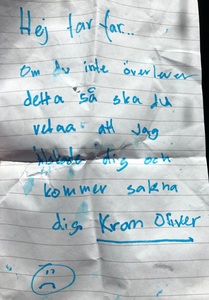 Hej far far...
Om du inte överlever
detta så ska du
vetaa att jag
dig och
kommer sakna
dig. Kram Oliver